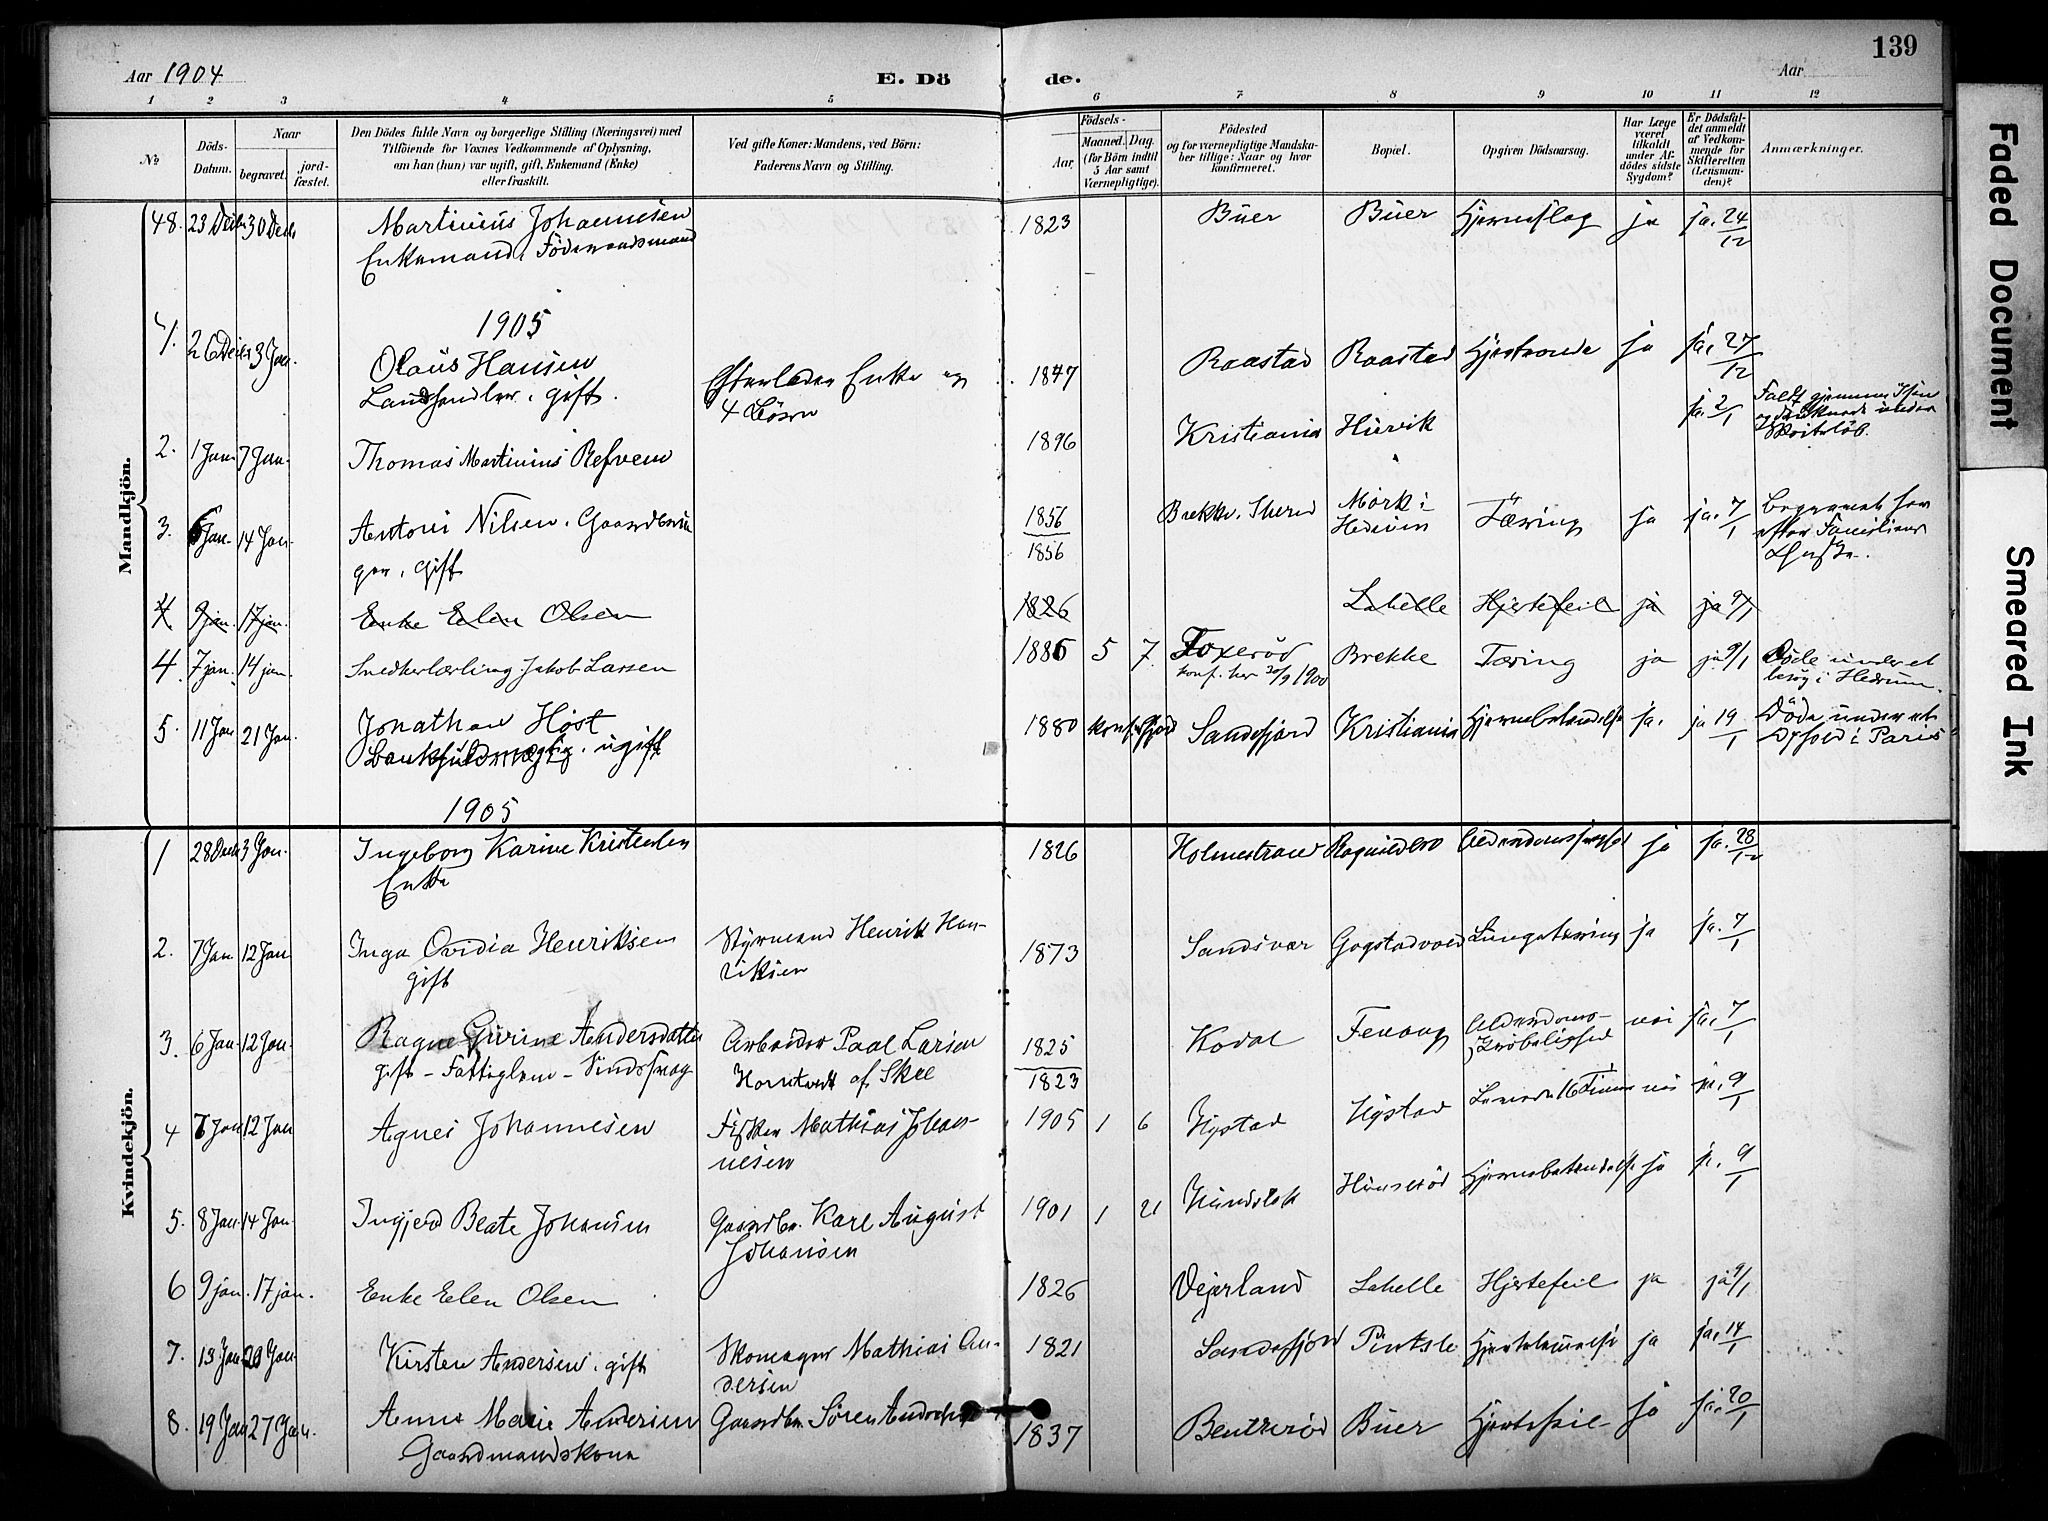 139
Aar 1904
E. Dö de.
Aar
1 2 3 4 5 6 7 8 9 10 11 12
No
Döds-Datum.
Naar
begravet.
jord-fæstet.
Den Dödes fulde Navn og borgerlige Stilling (Næringsvei) med
Tilföiende for Voxnes Vedkommende af Oplysning,
om han (hun) var ugift, gift, Enkemand (Enke)
eller fraskilt.
Ved gifte Koner: Mandens, ved Börn:
Faderens Navn og Stilling.
Födsels-
Aar.
Maaned. Dag.
(for Börn indtil
5 Aar samt
Værnepligtige).
Födested
og for værnepligtige Mandska-
ber tillige: Naar og hvor
konfirmeret.
Bopæl.
Opgiven Dödsaarsag.
Har Læge
været
tilkaldt
under Af-
dödes sidste
Sygdom?
Er Dödsfal-
det anmeldt
af Vedkom-
mende for
Skifteretten
(Lensman-
den)?
Anmærkninger.
Mandkjön.
48. 23 Decbr 30 Decbr Martinius Johannesen 1823 Buer Buer Hjerneslag ja ja. 24/12
Enkemand, Föderaadsmand
1905
1. 26 Decbr 3 Jan. Olaus Hansen Efterlader Enke og 1847 Raastad Raastad Hjertvonde ja ja. 27/12
Landhandler. gift. 4 Börn
2. 1 Jan. 7 Jan. Thomas Martinius Refvem 1896 Kristiania ja. 2/1 Faldt gjennem Isen
og druknede under
Skøiteløb.
3. 6 Jan. 14 Jan. Antoni Nilsen. Gaardbru- 1856 Brekke. Mørk i Tæring ja ja. 7/1 Begravet her
ger, gift 1856 Hedrum efter Familiens
Ønske.
4. 9 jan. 17 jan. Enke Elen Olsen 1826 Lahelle Hjertefeil ja ja 9/1
4. 7 jan. 14 jan. Snedkerlærling Jakob Larsen 1886 5 7 Foxerød Brekke Tæring ja ja 9/1 Døde under et
konf. her 30/9 1900 besøg i Hedrum.
5. 11 Jan 21 Jan. Jonathan Høst 1880 Sandefjord Kristiania Hjernebetændelse ja. ja 19/1 Døde under et
Bankfuldmægtig. ugift Ophold i Paris
1905
Kvindekjön.
1 28 Decbr 3 Jan. Ingeborg Karine Kristensen 1826 Holmestrand Alderdomssvaghed ja ja. 28/12
Enke
2. 7 Jan 12 Jan Inga Ovidia Henriksen Styrmand Henrik Hen- 1873 Sandsvær Lungetæring ja ja. 7/1
gift riksen
3. 6 Jan 12 Jan. Ragne Andersdatter Arbeider Paal Larsen 1825 Kodal Fevang Alderdoms- nei ja. 7/1
gift - Fattiglem - Sindssvag af Skee 1823 skrøbelighed
4 7 Jan 12 Jan Agnes Johannesen Fisker Mathias Johan- 1905 1 6 Hystad Hystad Levede 16 Timer nei ja. 9/1
nesen
5. 8 Jan 14 Jan. Ingjerd Beate Johansen Gaardbr. Karl August 1901 1 21 Hjernebetændelse ja ja. 9/1
Johansen
6 9 jan. 17 jan. Enke Elen Olsen 1826 Vejerland Lahelle Hjertefeil ja ja 9/1
7. 13 Jan 20 Jan Kirsten Andersen. gift Skomager Mathias An- 1821 Sandefjord Pindsle Hjertelammelse ja ja. 14/1
dersen
8. 19 Jan 27 Jan. Anne Marie Andersen Gaardbr. Søren Andersen 1837 Bentserød Buer Hjertefeil ja ja. 20/1
Gaardmandskone
Faded Document
Smeared Ink